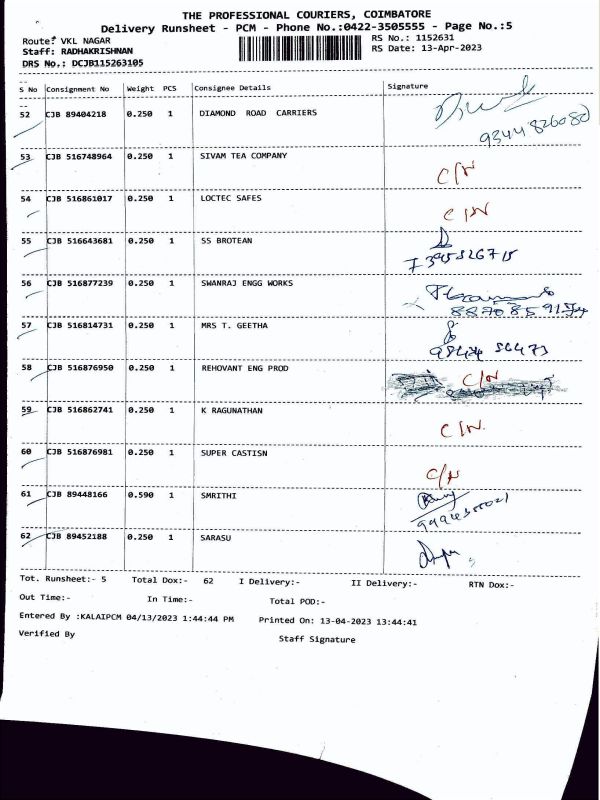 THE PROFESSIONAL COURIERS, COIMBATORE
Delivery Runsheet - PCM - Phone No.:0422-3505555 - Page No.:5
Route: VKL NAGAR RS No.: 1152631
Staff: RADHAKRISHNAN RS Date: 13-Apr-2023
DRS No.: DCJB115263105
S No Consignment No Weight PCS Consignee Details Signature
52 CJB 89404218 0.250 1 DIAMOND ROAD CARRIERS
9344826080
53 CJB 516748964 0.250 1 SIVAM TEA COMPANY C/N
54 CJB 516861017 0.250 1 LOCTEC SAFES C/N
55 CJB 516643681 0.250 1 SS BROTEAN
56 CJB 516877239 0.250 1 SWANRAJ ENGG WORKS
57 CJB 516814731 0.250 1 MRS T. GEETHA
58 CJB 516876950 0.250 1 REHOVANT ENG PROD C/N
59 CJB 516862741 0.250 1 K RAGUNATHAN C/N.
60 CJB 516876981 0.250 1 SUPER CASTISN C/N
61 CJB 89448166 0.590 1 SMRITHI
62 CJB 89452188 0.250 1 SARASU
Tot. Runsheet:- 5 Total Dox:- 62 I Delivery:- II Delivery:- RTN Dox:-
Out Time:- In Time:- Total POD:-
Entered By :KALAIPCM 04/13/2023 1:44:44 PM Printed On: 13-04-2023 13:44:41
Verified By Staff Signature